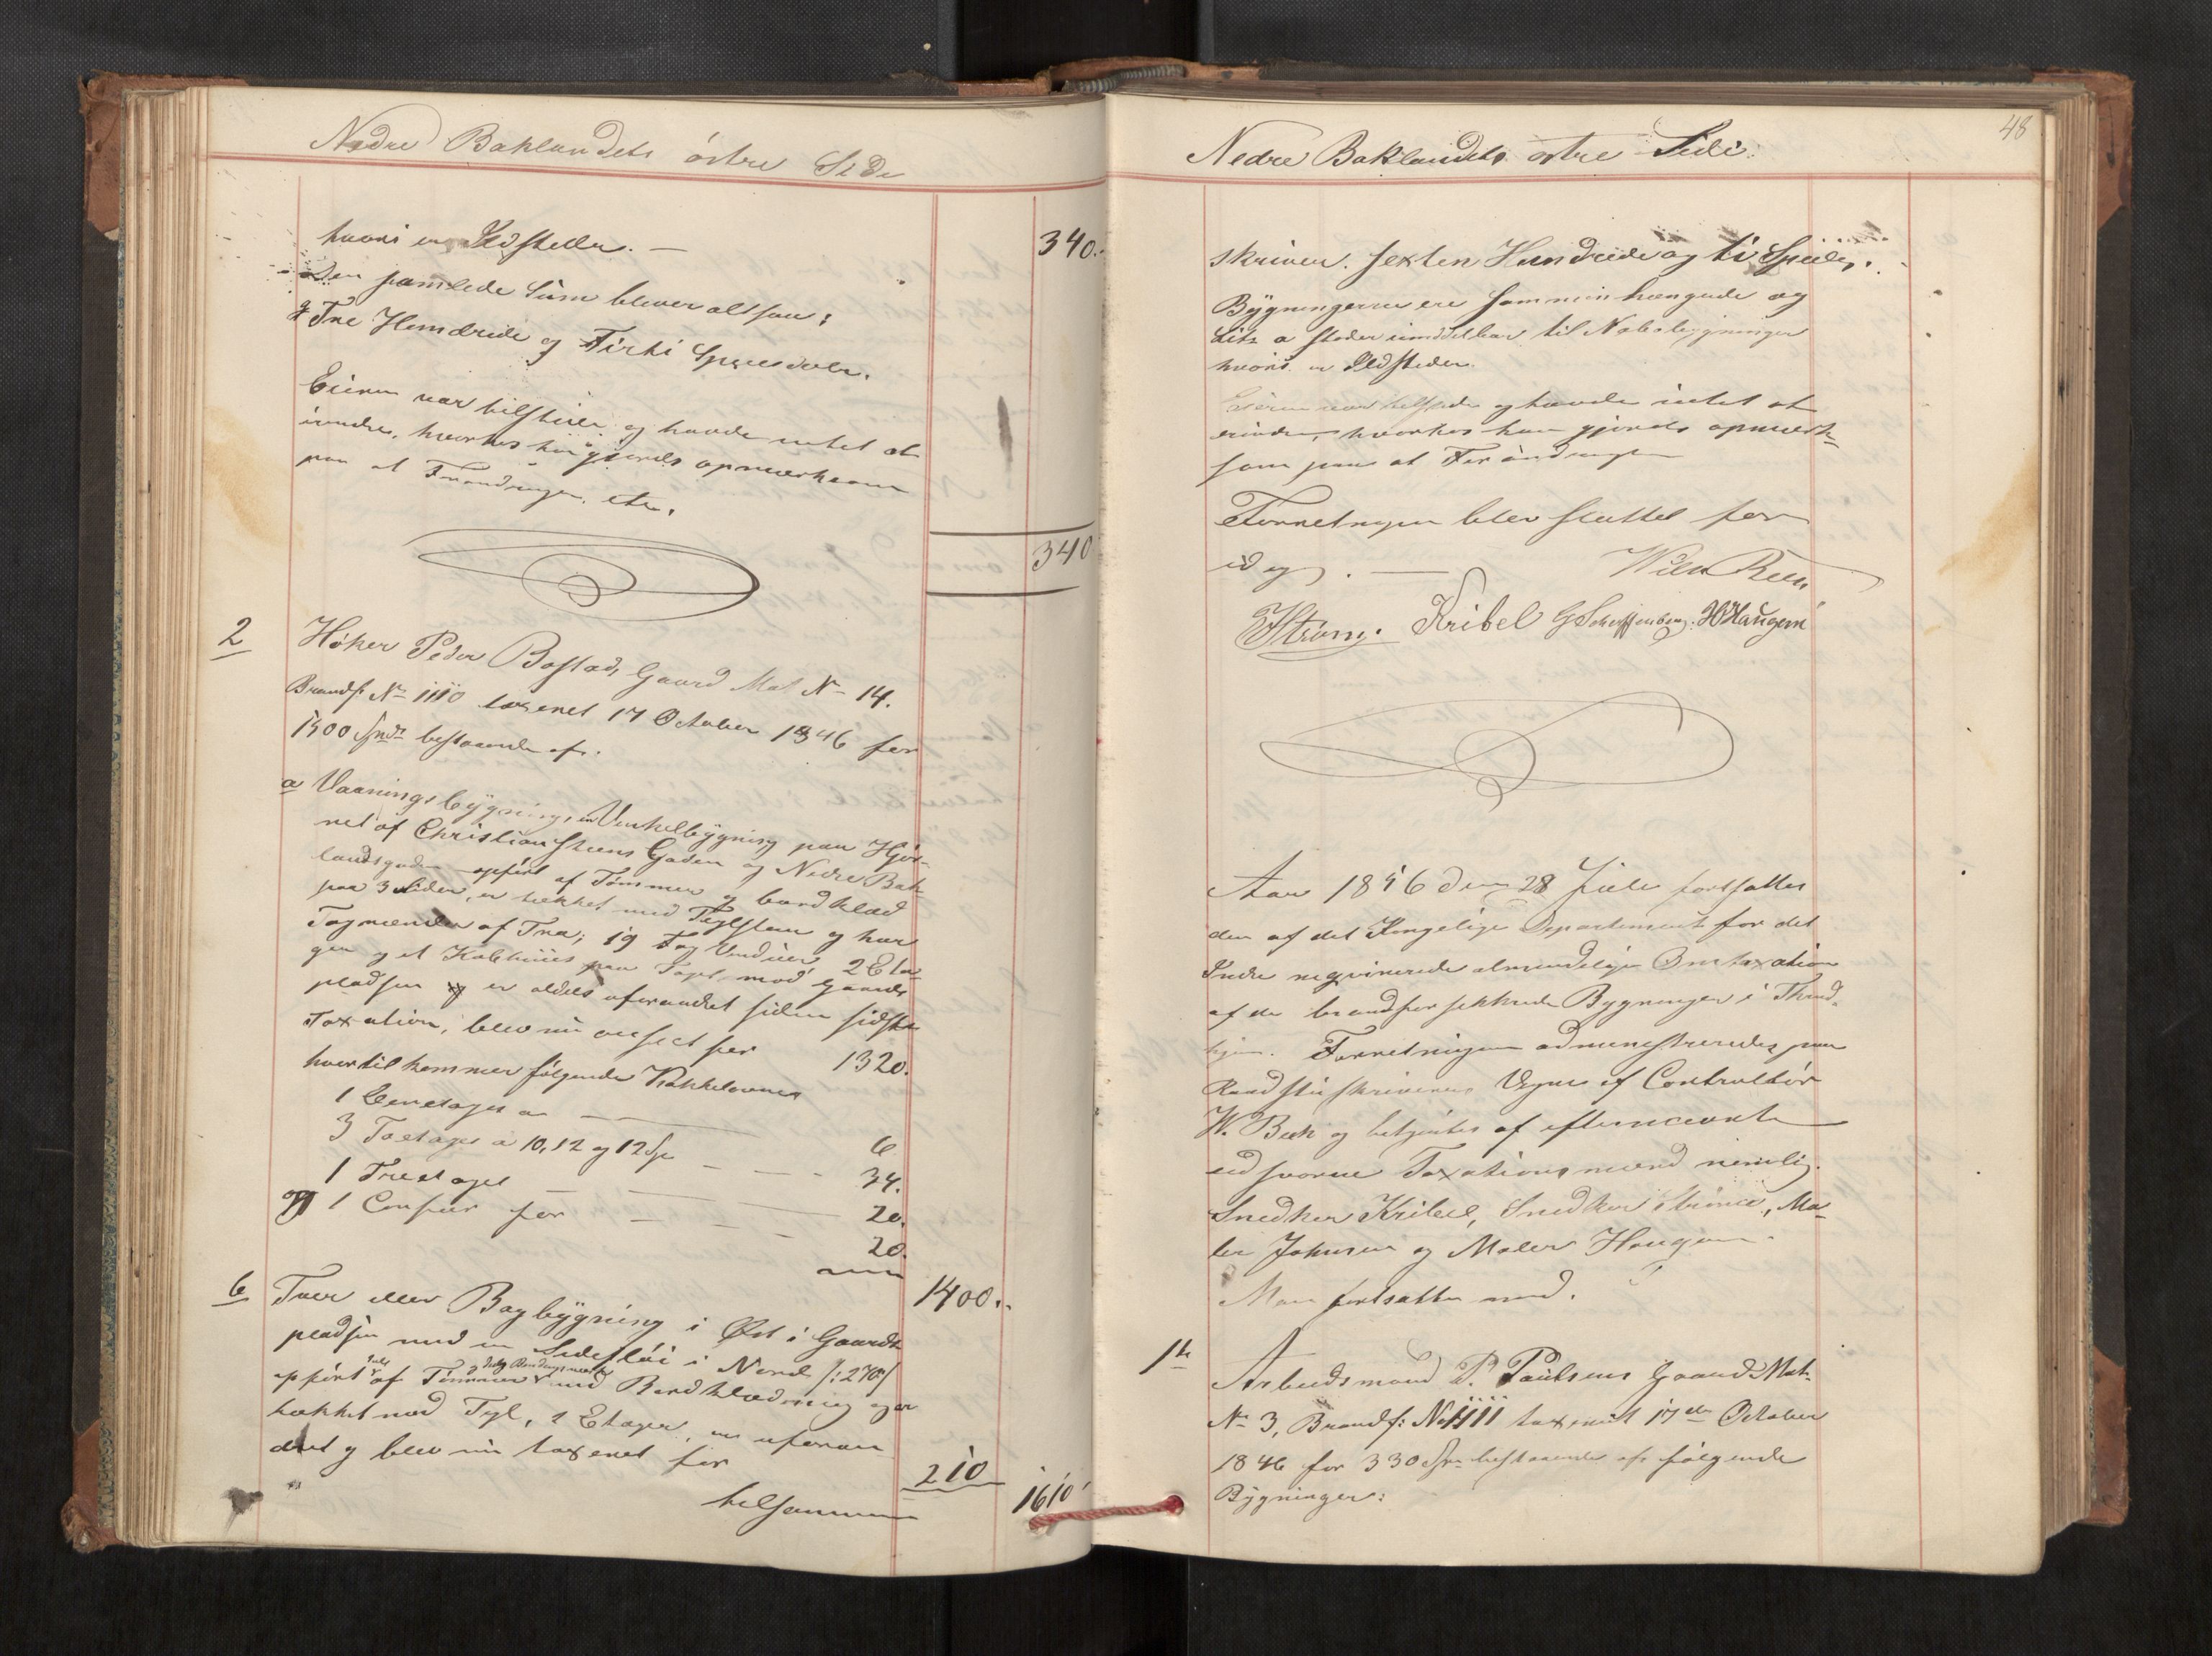 Nedre Baklandets östre Side
hvori en Ildsteder. — 340.
Den samlede Süm bliver altsaa:
Tre Hundrede og Firti Speciedaler.
Eieren var tilstede og havde intet at
erindre, hvorhos hün gjordes opmærksom
paa at Forandringer etc.
340
2 Höker Peder Bostads Gaard Mat No 14.
Brandf: No 1110 taxeret 17 October 1846 for
1500 Spdr bestaaende af:
a Vaaningsbÿgning, en Vinkelbÿgning paa Hjör-
net af Christianstens Gaden og Nedre Bak-
landsgaden opfört af Tömmer og bordklæd
paa 3 Sider, er tækket med Teglsteen og har
Tagrender af Træ; 19 Fag Vinduer 2 Eta-
ger og et Kobhuus paa Taget mod Gaards-
pladsen er aldeles uforandret siden sidste
Taxation, blev nü anseet for 1320.
hvortil kommer fölgende Kakkelovne
1 Eenetages a — 6
3 Toetages a 10, 12 og 12 Sp — 34.
1 Treetages — 20.
og 1 Comfür for — 20.
1400.
b Tver eller Bagbÿgning i Öst i Gaards-
pladsen med en Sideflöi i Nord /: 270 /
opfört deels af Tömmer og deels Bindingsværk med Bordklædning og er
tækket med Tegl, 2 Etager, er uforan-
dret og blev nü taxeret for 210
tilsammen 1610
48
Nedre Baklandets östre Side.
skriver. sexten Hundrede og ti Speciedr.
Bÿgningerne ere sammenhængende og
Litr a stöder umiddelbar til Nabobygninger
hvori er Ildsteder.
Eieren var tilstede og havde intet at
erindre, hvorhos han gjordes opmærk-
som paa at Forandringer
Forretningen blev sluttet for
idag. —
Ström. Kribel G Scheffenberg. H Haugum
Aar 1856 den 28 Juli fortsattes
den af det Kongelige Departement for det
Indre reqvirerede almindelige Omtaxation
af de brandforsikkrede Bygninger i Thrond-
hjem. Forretningen administreredes paa
Raadstüskriverens Vegne af Controllör
W. Beck og betjentes af efternævnte
edsvorne Taxationsmænd nemlig
Snedker Kribel, Snedker Ström, Ma-
ler Johnsen og Maler Haugum.
Man fortsatte med.
1te Arbeidsmand P. Paulsens Gaard Mat.
No 3, Brandf: No 1111 taxeret 17de October
1846 for 330 Spd bestaaende af fölgende
Bÿgninger: